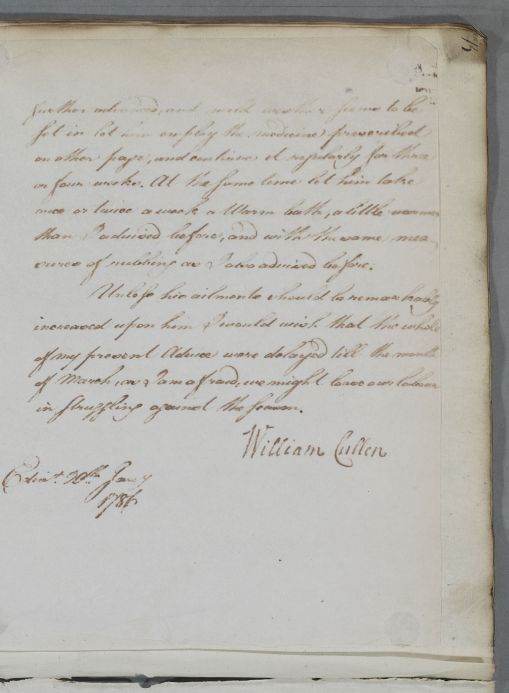 further advanced, and mild weather seems to be
set in let him employ the medicines prescribed
on other page, and continue it regularly for three
or four weeks. At the same time let him take
once or twice a week a Warm bath, a little warmer
than I advised before, and with the same mea
sures of rubbing as I also advised before.
Unless his ailments should be remarkably
increased upon him I would wish that the whole
of my present Advice were delayed till the month
of March as I am afraid, we might loose our labour
in struggling against the season.
William Cullen
Edinr. 20th Jany
1786